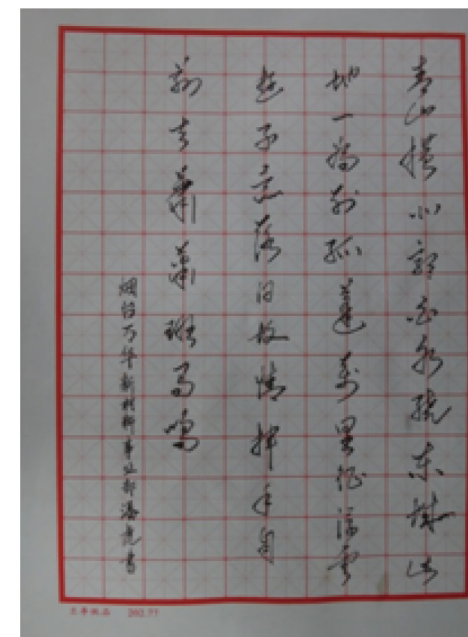 青山横北郭白水绕东城此
地一为别孤蓬万里征浮云
游子意落日故情挥手自
兹去萧萧班马鸣
烟台万华新材料事业部潘亮书